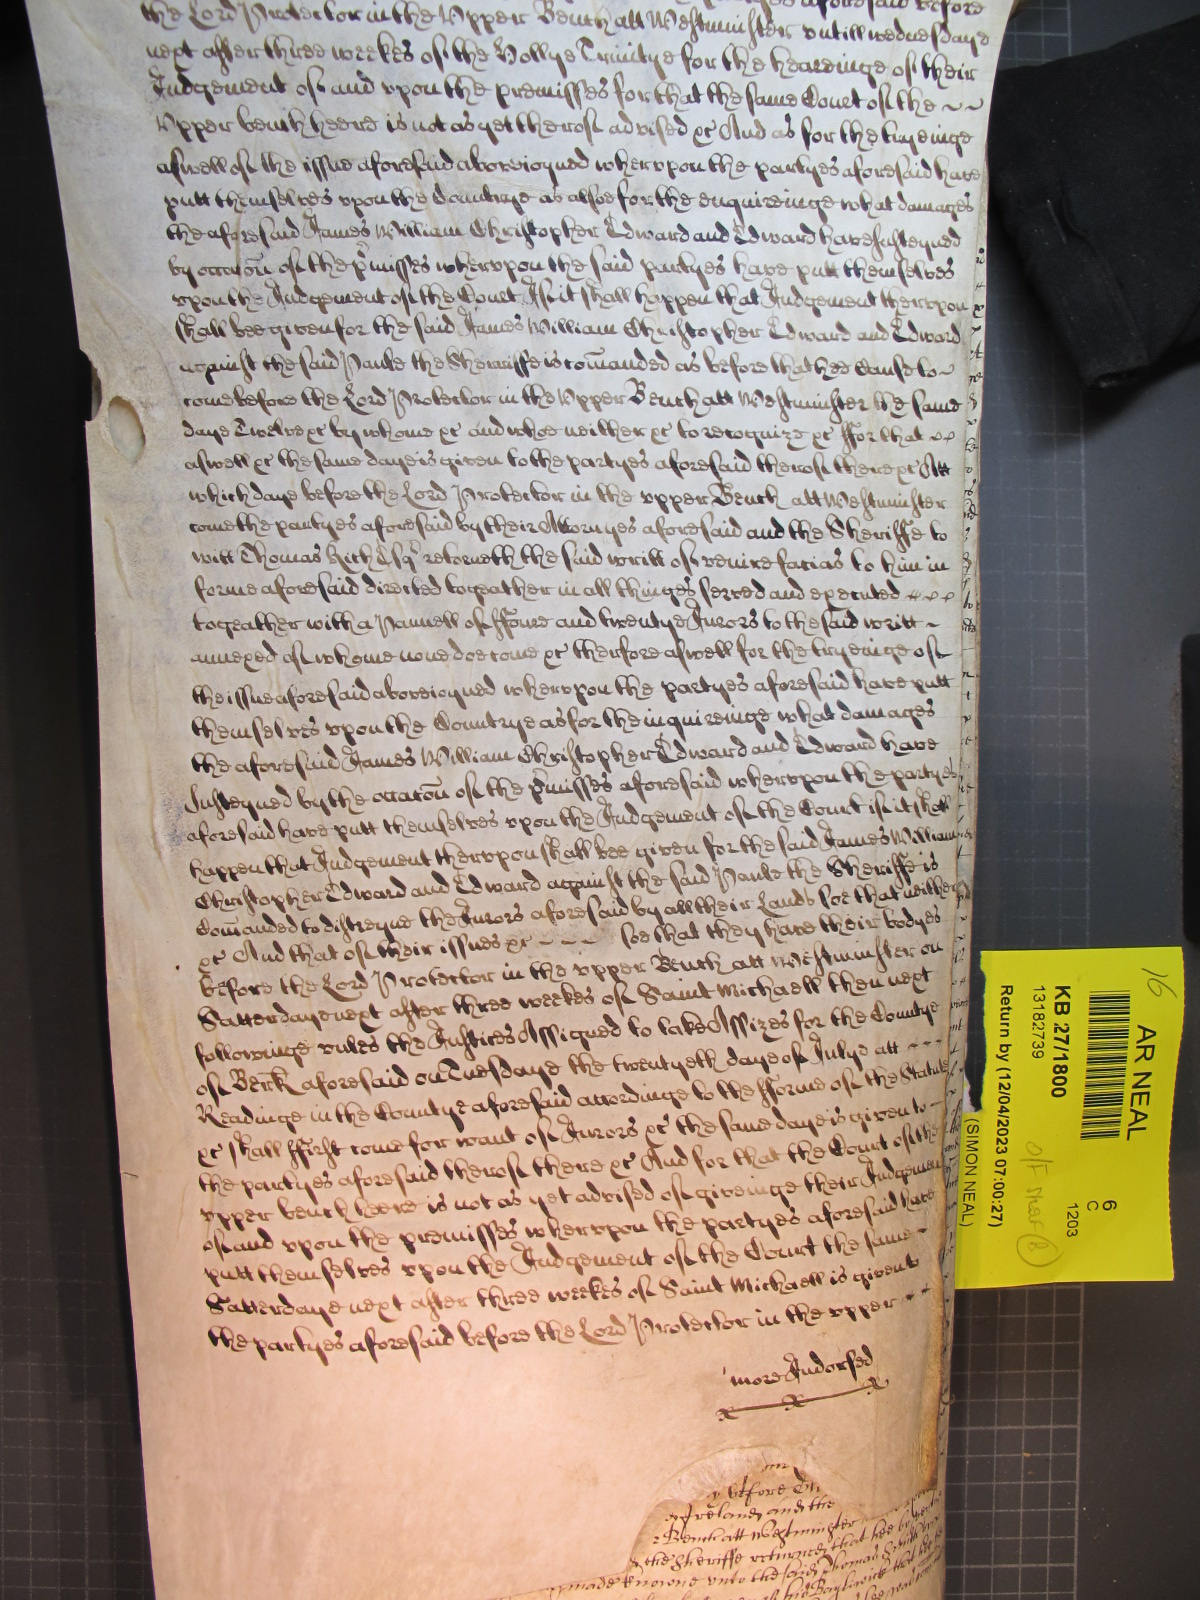 the Lord Protector in the Upper Bench att Westminster untill wednesdaye
next after three weekes of the Hollye Trinitye for the heareinge of their
Judgement of and upon the premisses for that the same Court of the ~ ~
Upper bench heere is not as yet therof advised &c And as for the tryeinge
aswell of the issue aforesaid aboveioyned wherupon the partyes aforesaid have
putt themselves upon the Countrye as alsoe for the enquireinge what damages
the aforesaid James William Christopher Edward and Edward have susteyned
by occacon of the pmisses wherupon the said partyes have putt themselves
upon the Judgement of the Court If it shall happen that Judgement therupon
shall bee given for the said James William Christopher Edward and Edward
against the said Paule the Sherriffe is comanded as before that hee Cause to ~
come before the Lord Protector in the Upper Bench att Westminster the same
daye Twelve &c by whome &c and whoe neither &c to recognize &c ffor that ~ ~
aswell &c the same daye is given to the partyes aforesaid therof there &c Att
which daye before the Lord Protector in the upper Bench att Westminster
come the partyes aforesaid by their Attornyes aforesaid and the Sheriffe to
witt Thomas Rich Esqr retorneth the said writt of venire facias to him in
forme aforesaid directed togeather in all thinges served and executed ~ ~ ~
togeather with a Pannell of ffoure and twentye Jurors to the said writt ~
annexed of whome none doe come &c therfore aswell for the tryeinge of
the issue aforesaid aboveioyned wherupon the partyes aforesaid have putt
themselves upon the Countrye as for the inquireinge what damages
the aforesaid James William Christopher Edward and Edward have
susteyned by the occacon of the pmisses aforesaid wherupon the partyes
aforesaid have putt themselves upon the Judgement of the Court if it shall
happen that Judgement therupon shall bee given for the said James William
Christopher Edward and Edward against the said Paule the Sheriffe is
Comanded to distreyne the Jurors aforesaid by all their Lands soe that neither
&c And that of their issues &c ~ ~ ~ soe that they have their bodyes
before the Lord Protector in the upper Bench att Westminster on
Satterdaye next after three weekes of Saint Michaell then next
followinge unles the Justices Assigned to take Assizes for the Countye
of Berk aforesaid on Tuesdaye the twentyeth daye of Julye att ~ ~ ~
Readinge in the Countye aforesaid accordinge to the fforme of the Statute
&c shall ffirst come for want of Jurors &c the same daye is given to ~
the partyes aforesaid therof there &c And for that the Court of the
upper bench heere is not as yet advised of giveinge their Judgement
of and upon the premisses wherupon the partyes aforesaid have
putt themselves upon the Judgement of the Court the same ~
Satterdaye next after three weekes of Saint Michaell is given to
the partyes aforesaid before the Lord Protector in the upper ~ ~
more Indorsed
before
Ireland and the
Bench att Westminster
the Sheriffe returned that hee
made knowne unto the said Thomas
Baylywick that hee
AR NEAL
6
C
1203
KB 27/1800
13182739
Return by (12/04/2023 07:00:27)
(SIMON NEAL)
16